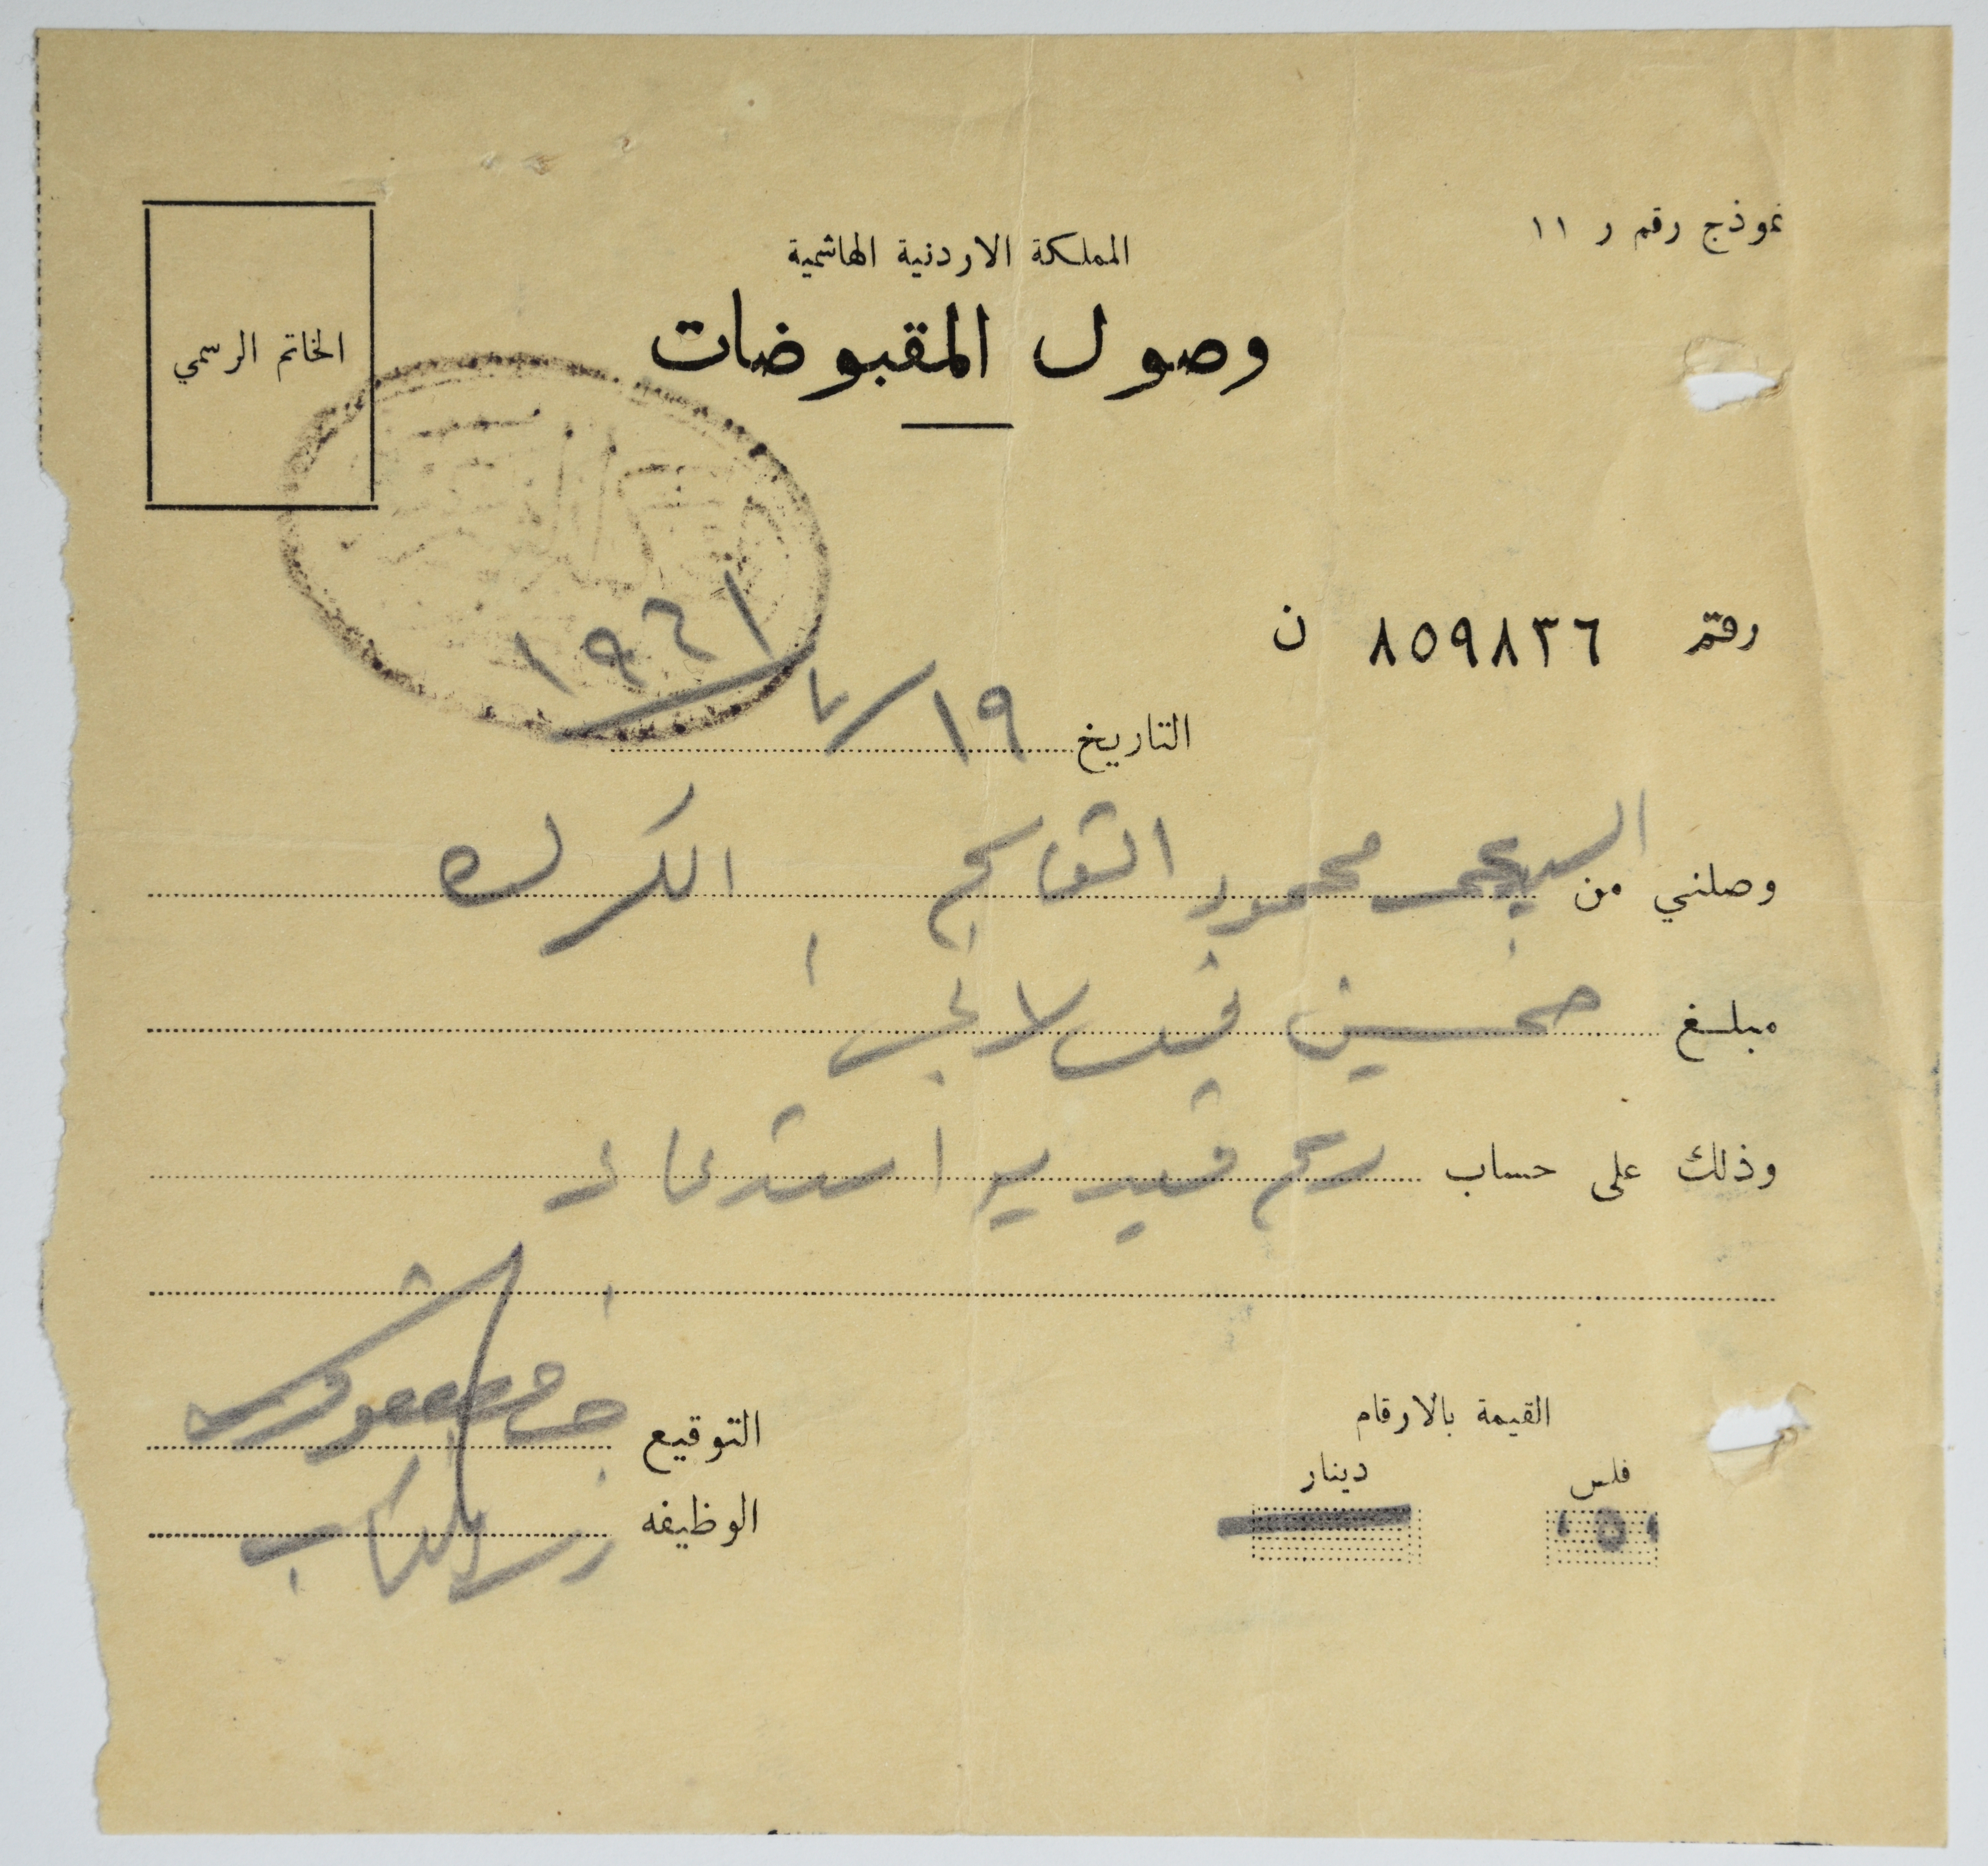 نموذج رقم ر ١١
المملكة الاردنية الهاشمية
وصول المقبوضات
الخاتم الرسمي
رقم ٨٥٩٨٣٦ ن
١٩٦١
التاريخ ١٩/٧
وصلني من السيد محمود الكرك
مبلغ خمسين فلس لا غير
وذلك على حساب رسم قيد استدعاء
القيمة بالارقام
فلس دينار
٠٥٠
التوقيع
الوظيفه